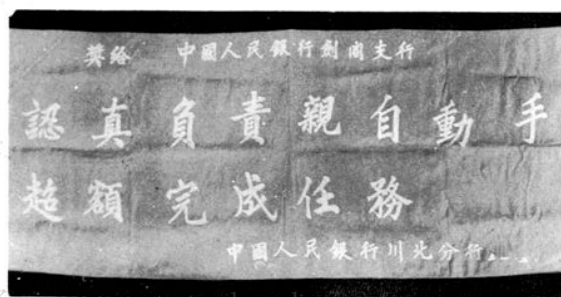 奬給 中國人民銀行劍閣支行
認真負責親自動手
超額完成任務
中國人民銀行川北分行